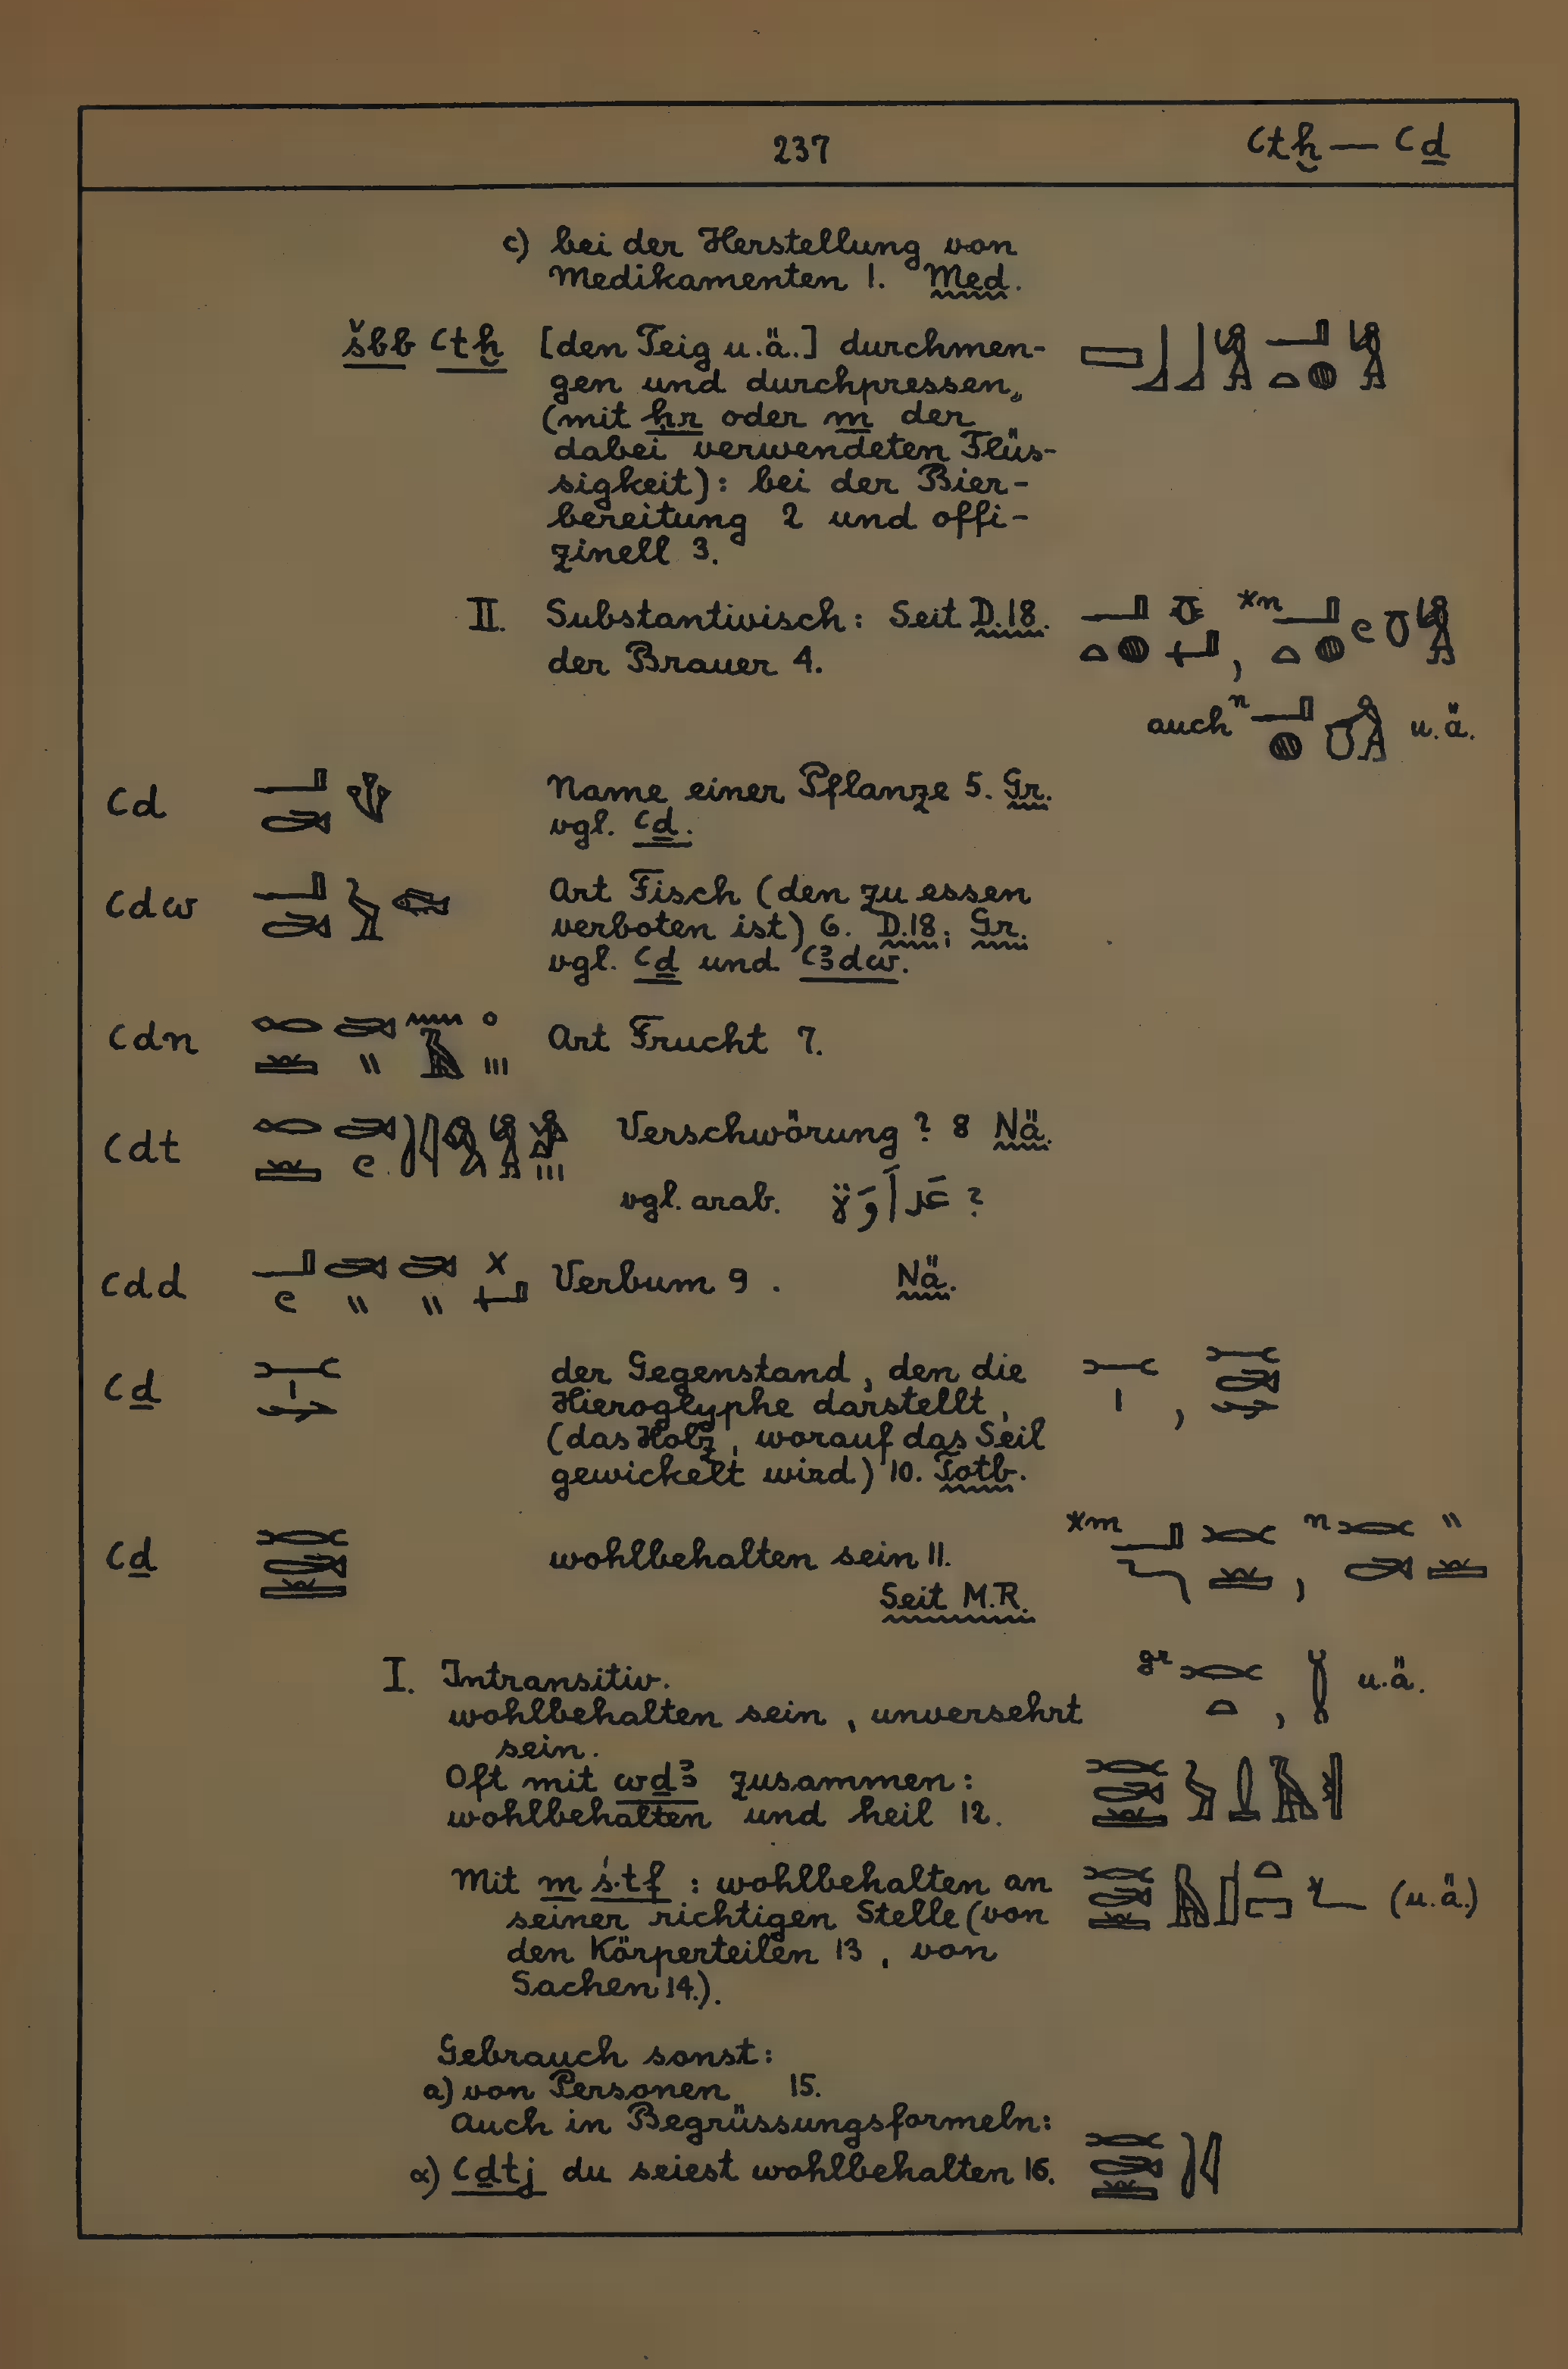 237
ꜥtḫ — ꜥḏ
c) bei der Herstellung von
Medikamenten 1. Med.
šbb ꜥtḫ [den Teig u.ä.] durchmen-
gen und durchpressen,
(mit ḥr oder m der
dabei verwendeten Flüs-
sigkeit): bei der Bier-
bereitung 2 und offi-
zinell 3.
II. Substantivisch: Seit D.18.
der Brauer 4.
*n
auch n u.ä.
ꜥd Name einer Pflanze 5. Gr.
vgl. ꜥḏ.
ꜥdw Art Fisch (den zu essen
verboten ist) 6. D.18; Gr.
vgl. ꜥḏ und ꜥꜣdw.
ꜥdn Art Frucht 7.
ꜥdt Verschwörung ? 8 Nä.
vgl. arab. عَدَاوَة ?
ꜥdd Verbum 9. Nä.
ꜥḏ der Gegenstand, den die
Hieroglyphe darstellt,
(das Holz, worauf das Seil
gewickelt wird) 10. Totb.
ꜥḏ wohlbehalten sein 11. *m , n
Seit M.R.
I. Intransitiv. gr , u.ä.
wohlbehalten sein, unversehrt
sein.
Oft mit wḏꜣ zusammen:
wohlbehalten und heil 12.
Mit m ś.t f : wohlbehalten an (u.ä.)
seiner richtigen Stelle (von
den Körperteilen 13, von
Sachen 14.).
Gebrauch sonst:
a) von Personen 15.
Auch in Begrüssungsformeln:
α) ꜥḏtj du seiest wohlbehalten 16.